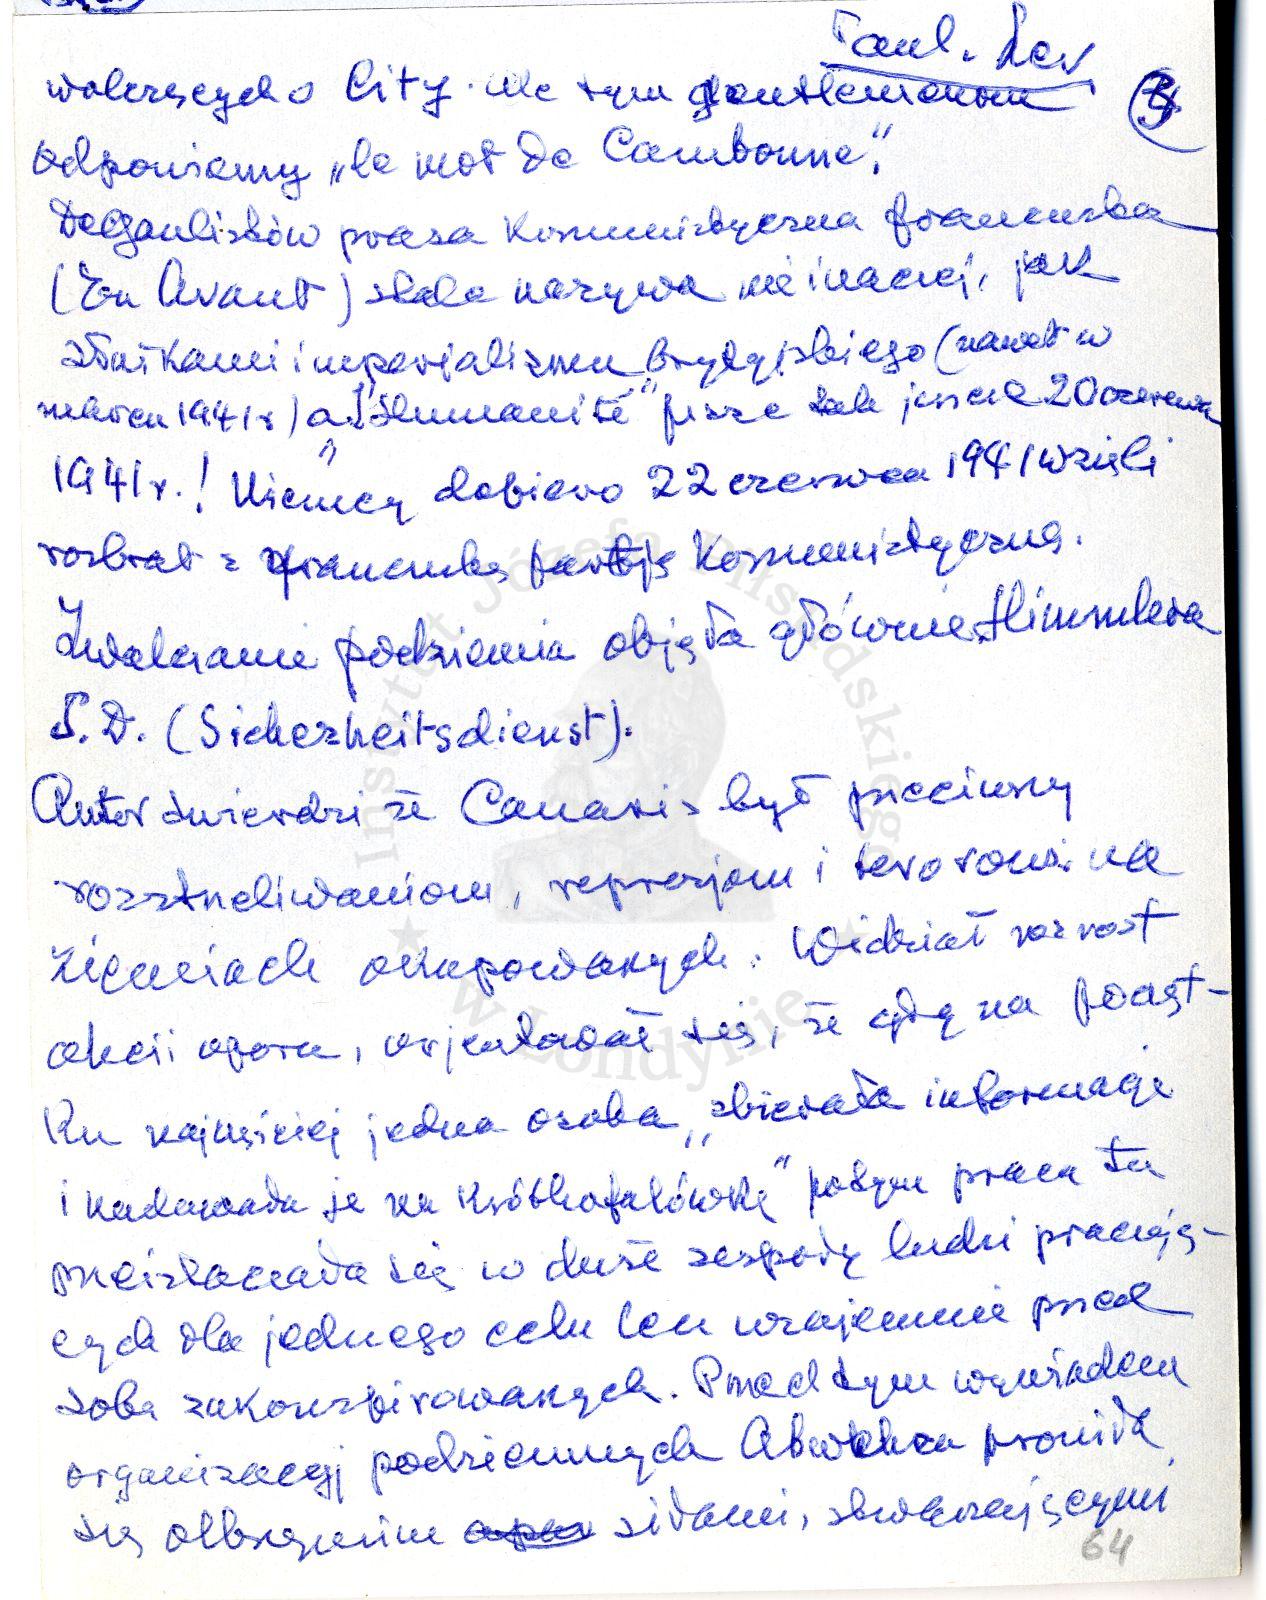 Paul. Lev
5
walczących o City. Ale tym gentlemenom
odpowiemy „le mot de Cambonne”.
DeGaulistów prasa komunistyczna francuska
(En Avant) stale nazywa nie inaczej, jak
sługami imperjalizmu brytyjskiego (nawet w
marcu 1941 r) a „l'Humanité” pisze tak jeszcze 20 czerwca
1941 r.! Niemcy dopiero 22 czerwca 1941 wzięli
rozbrat z francuską partją komunistyczną.
Zwalczanie podziemia objęła głównie Himmlera
S.D. (Sicherheitsdienst).
Autor twierdzi że Canaris był przeciwny
rozstrzeliwaniom, represjom i terorowi na
ziemiach okupowanych. Widział wzrost
akcji oporu, orjentował się, że gdy na począt-
ku najwyżej jedna osoba „zbierała informacje
i nadawała je na krótkofalówkę” potym praca ta
przeistaczała się w duże zespoły ludzi pracują-
cych dla jednego celu lecz wzajemnie przed
sobą zakonspirowanych. Przed tym wywiadem
organizacyj podziemnych Abwehra broniła
się olbrzymim siłami, stwarzającymi
64
Instytut Józefa Piłsudskiego
w Londynie